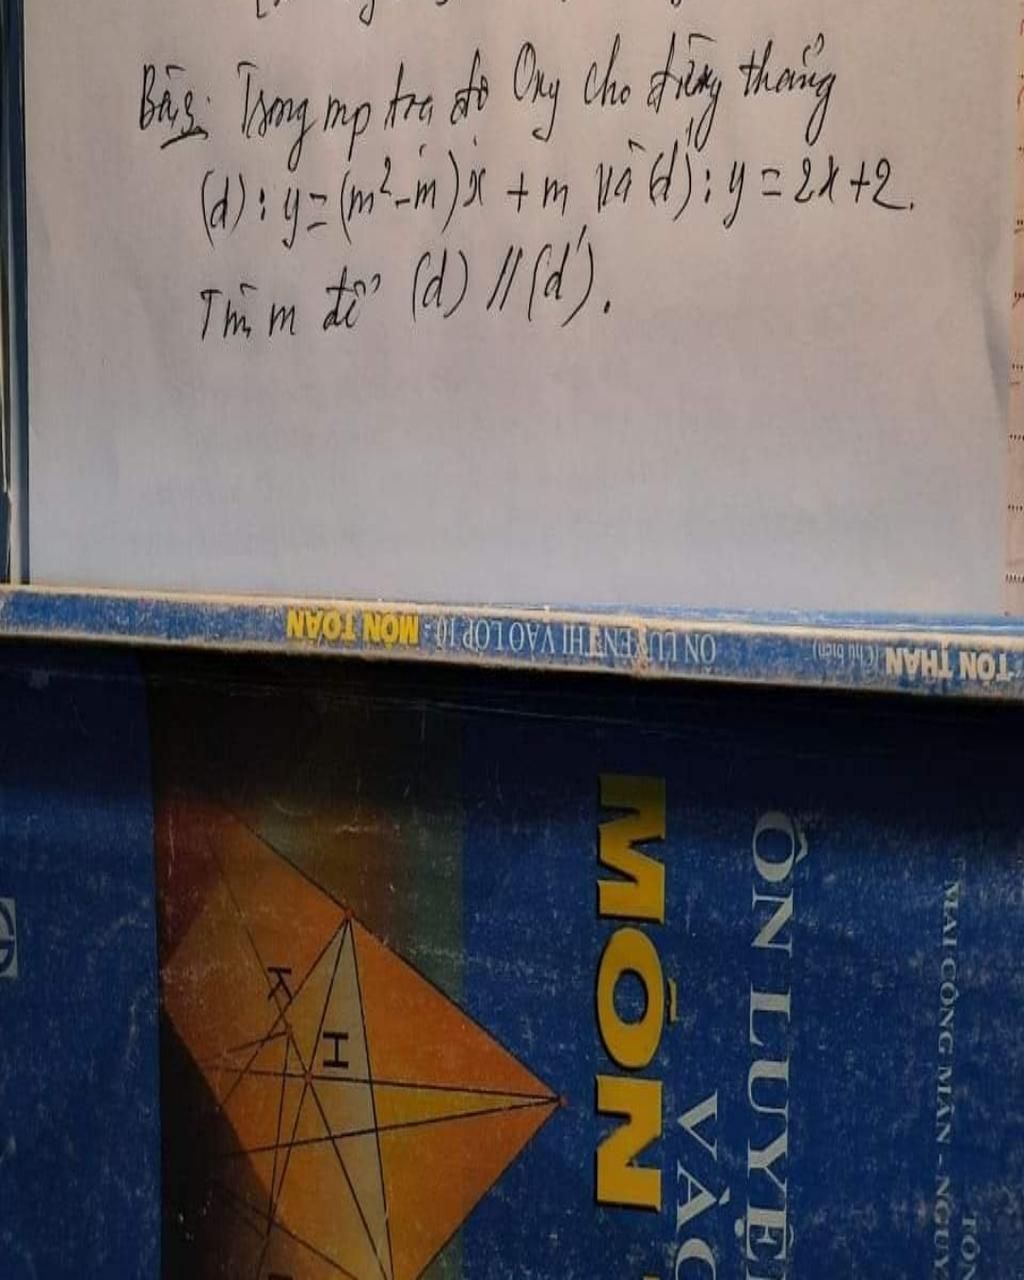 Bài 3: Trong mp tọa độ Oxy cho đường thẳng
(d): y = (m² - m)x + m và (d'): y = 2x + 2.
Tìm m để (d) // (d').
TÔN THÂN (Chủ biên) ÔN LUYỆN THI VÀO LỚP 10 - MÔN TOÁN
MAI CÔNG MÃN - NGUY
TÔN
ÔN LUYỆ
VÀO
MÔN
K
H